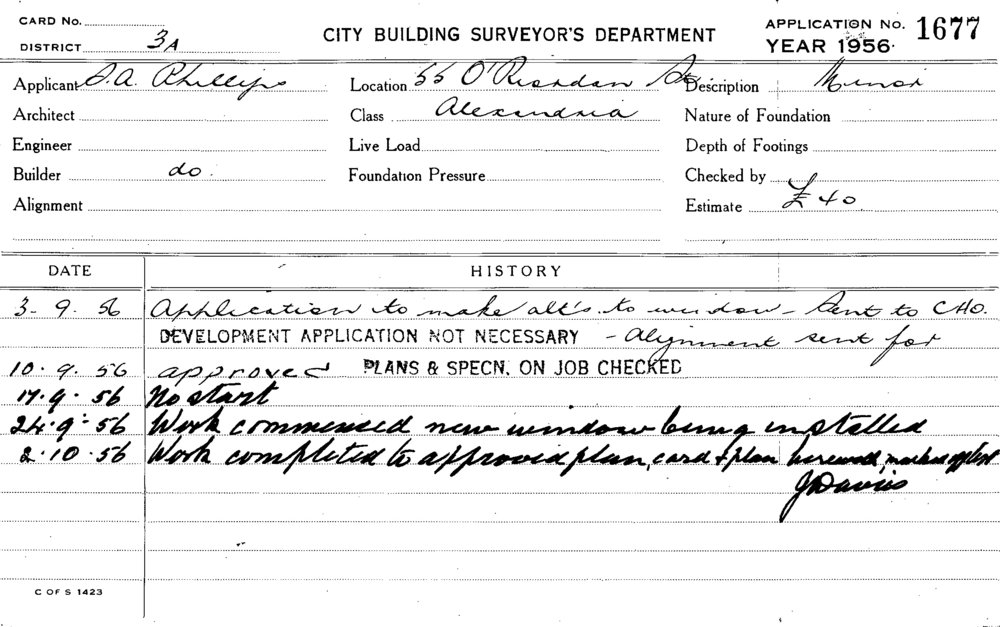 CARD No.
DISTRICT 3A
CITY BUILDING SURVEYOR'S DEPARTMENT
APPLICATION No. 1677
YEAR 1956.
Applicant S. A. Phillips Location 55 O'Riordan St Description Minor
Architect Class Alexandria Nature of Foundation
Engineer Live Load Depth of Footings
Builder do. Foundation Pressure Checked by
Alignment Estimate £40.
DATE HISTORY
3-9.56 Application to make alt's. to window - Sent to CHO.
DEVELOPMENT APPLICATION NOT NECESSARY - Alignment sent for
10.9.56 approved PLANS & SPECN. ON JOB CHECKED
17.9.56 No start
24.9.56 Work commensed new window being installed
2.10.56 Work completed to approved plan, card & plan herewith,
J Davies
C OF S 1423